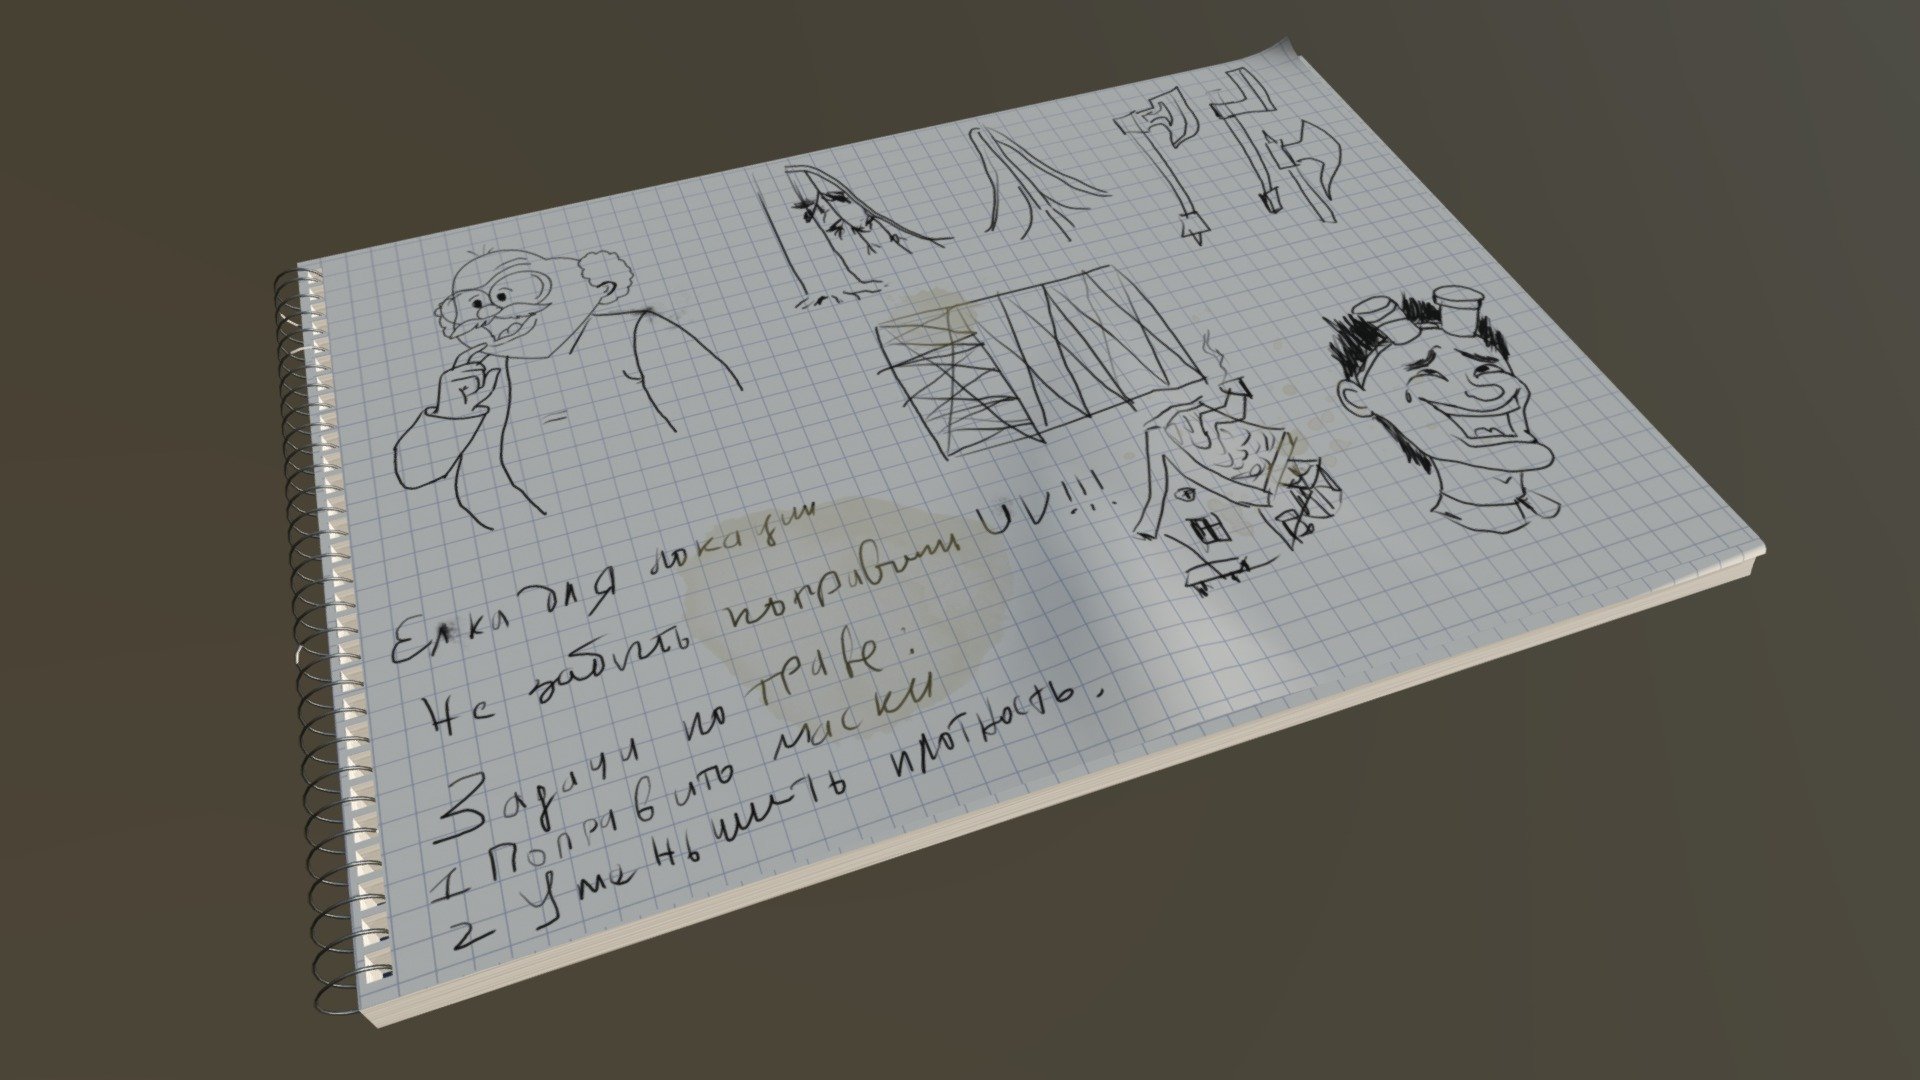 Елка для локации
Не забыть поправить UV!!!
Задачи по траве:
1 Поправить маски
2 Уменьшить плотность.